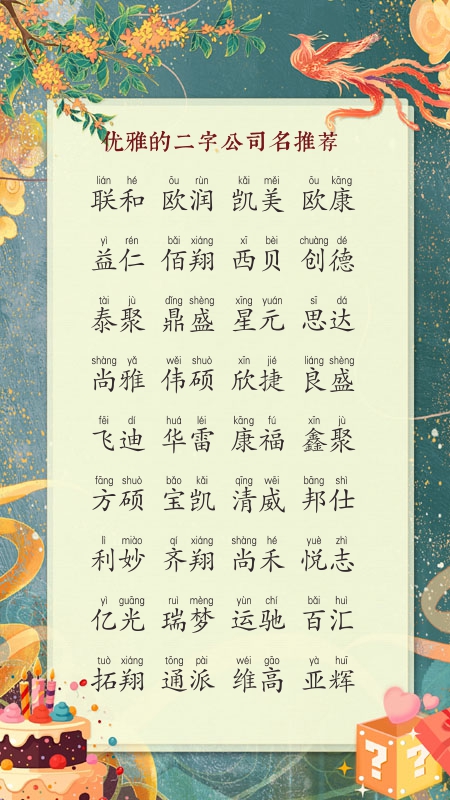 优雅的二字公司名推荐
lián hé ōu rùn kǎi měi ōu kāng
联和 欧润 凯美 欧康
yì rén bǎi xiáng xī bèi chuàng dé
益仁 佰翔 西贝 创德
tài jù dǐng shèng xīng yuán sī dá
泰聚 鼎盛 星元 思达
shàng yǎ wěi shuò xīn jié liáng shèng
尚雅 伟硕 欣捷 良盛
fēi dí huá léi kāng fú xīn jù
飞迪 华雷 康福 鑫聚
fāng shuò bǎo kǎi qīng wēi bāng shì
方硕 宝凯 清威 邦仕
lì miào qí xiáng shàng hé yuè zhì
利妙 齐翔 尚禾 悦志
yì guāng ruì mèng yùn chí bǎi huì
亿光 瑞梦 运驰 百汇
tuò xiáng tōng pài wéi gāo yà huī
拓翔 通派 维高 亚辉
? ?